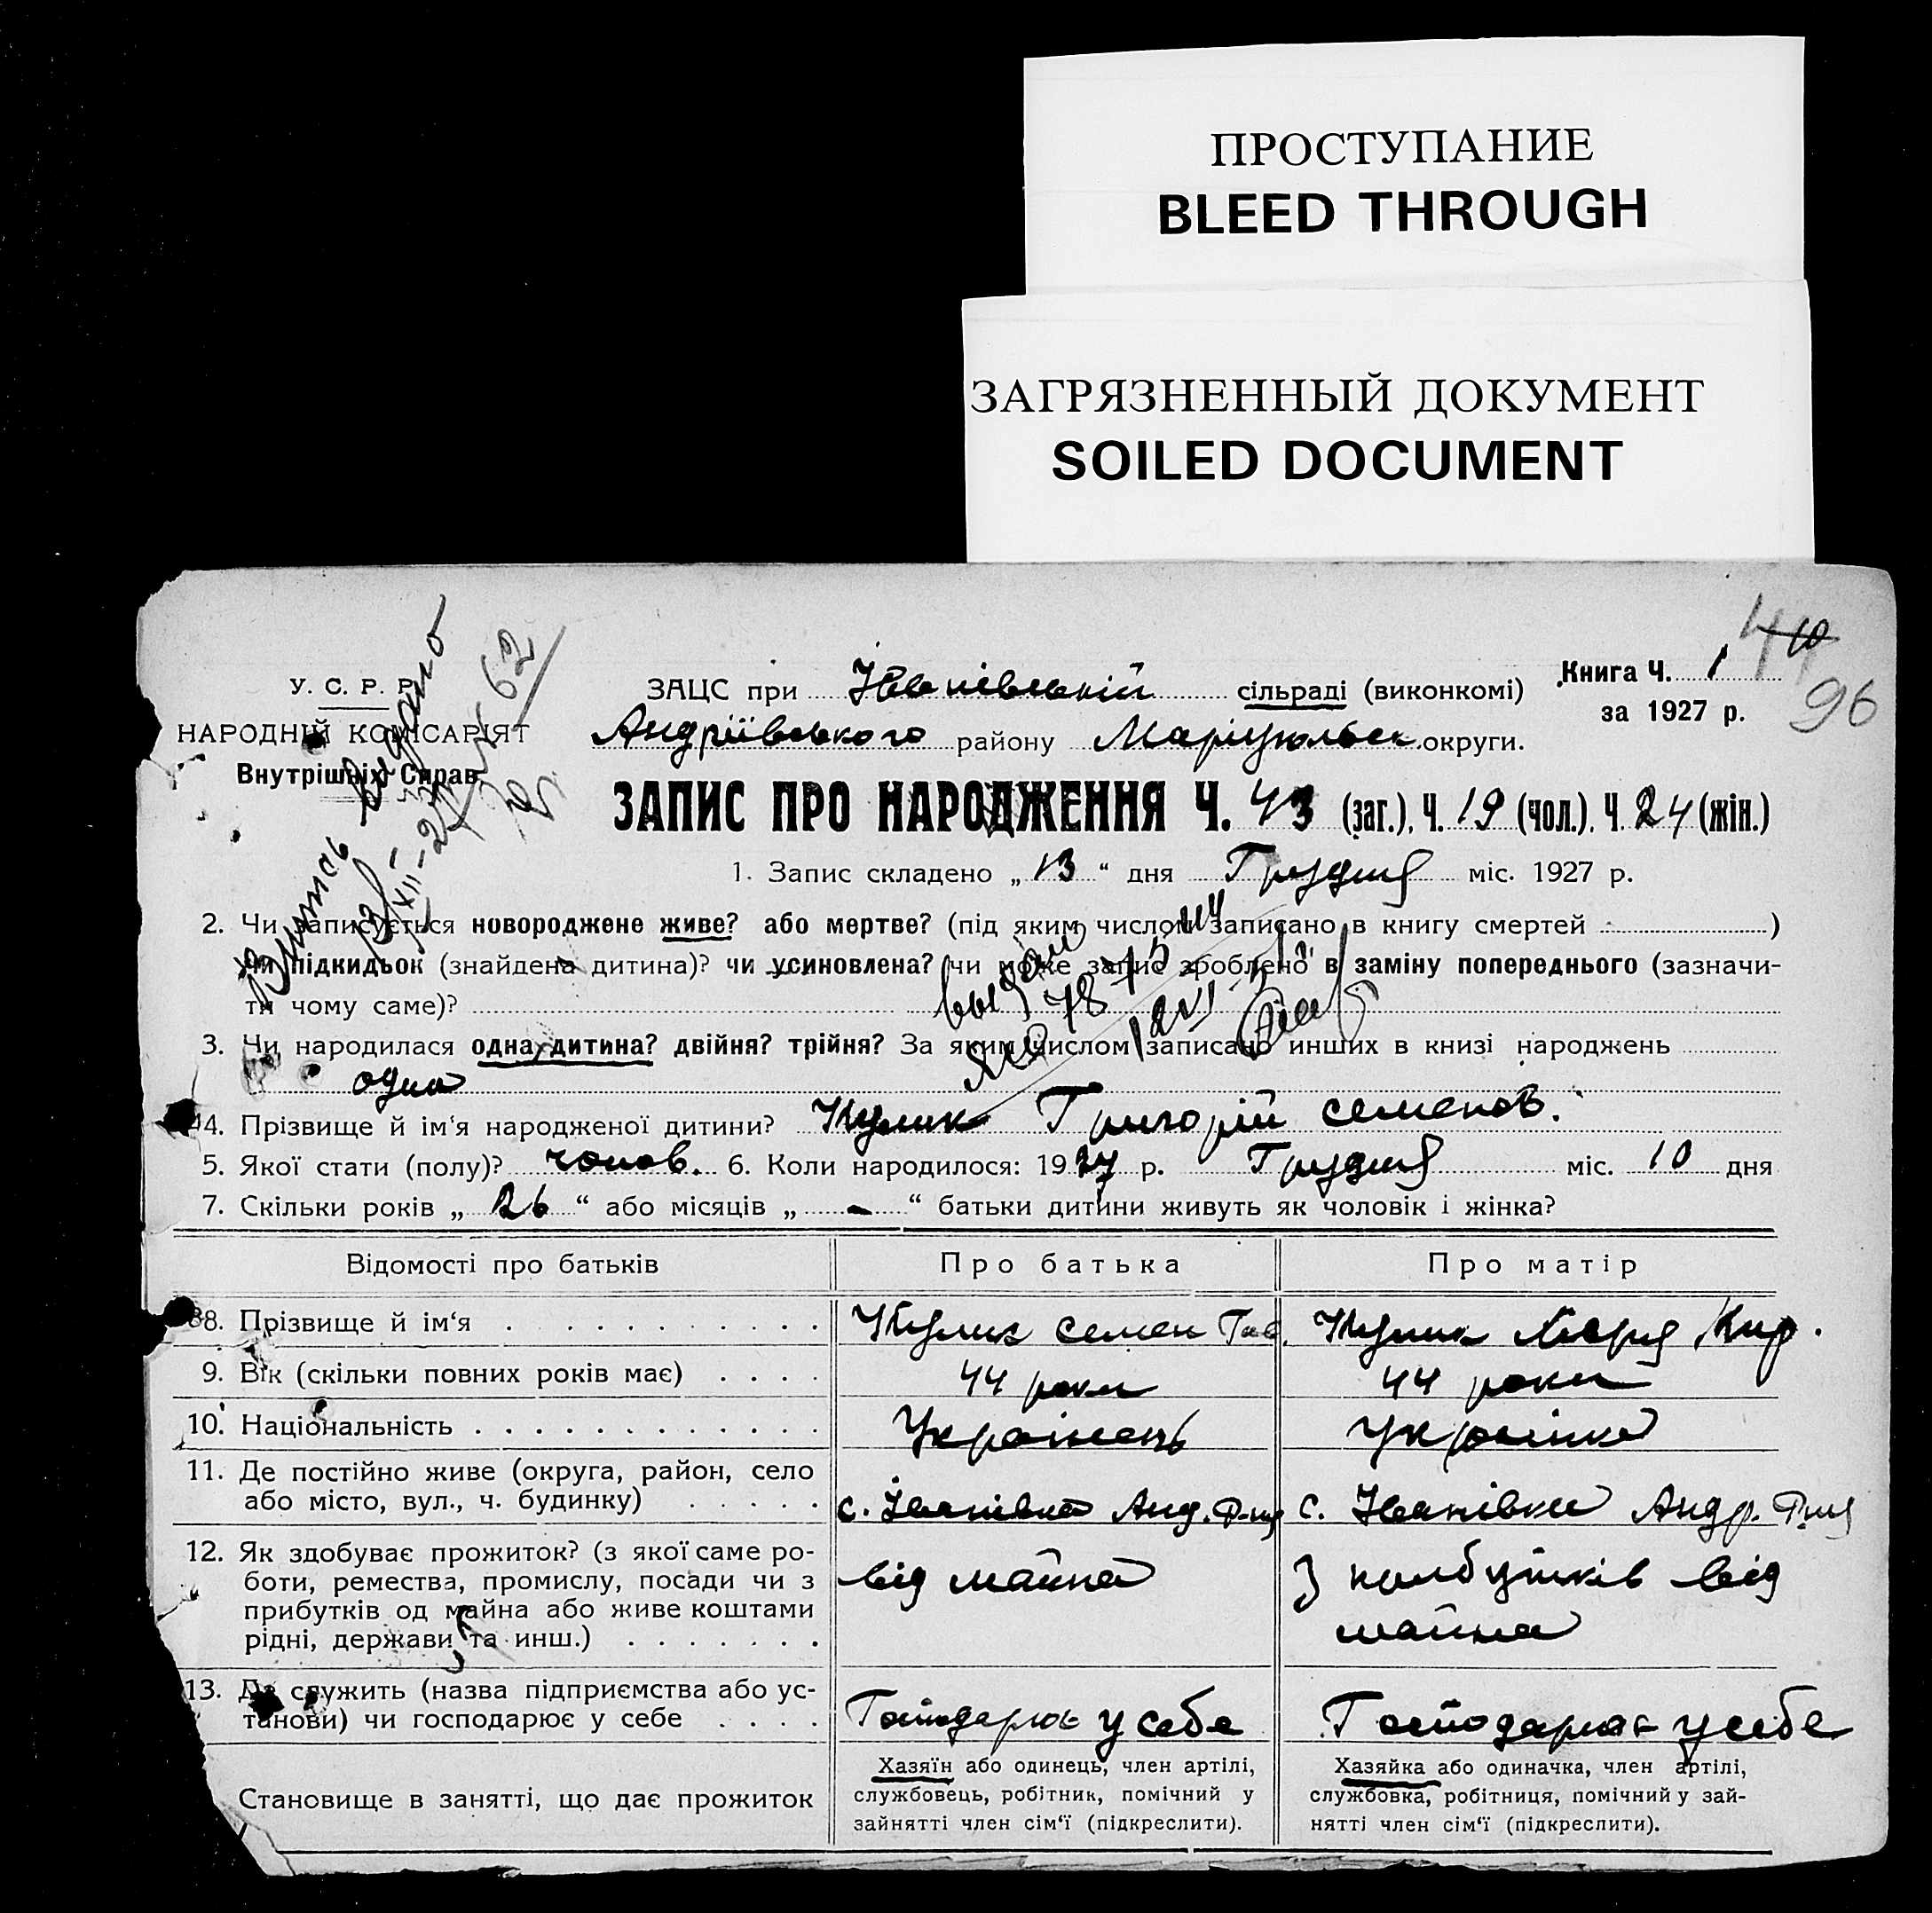 ПРОСТУПАНИЕ
BLEED THROUGH
ЗАГРЯЗНЕННЫЙ ДОКУМЕНТ
SOILED DOCUMENT
У. С. Р. Р.
НАРОДНІЙ КОМІСАРІЯТ
Внутрішніх Справ
Витись видано
62
ЗАЦС при Іванівській сільраді (виконкомі)
Андріївського району Маріупольськ округи.
Книга Ч. 1
за 1927 р.
96
ЗАПИС ПРО НАРОДЖЕННЯ Ч. 43 (заг.), Ч. 19 (чол.), Ч. 24 (жін.)
1. Запис складено „ 13 “ дня Грудня міс. 1927 р.
2. Чи записується новороджене живе? або мертве? (під яким числом записано в книгу смертей )
Чи підкидьок (знайдена дитина)? чи усиновлена? чи може запис зроблено в заміну попереднього (зазначи-
ти чому саме)?
3. Чи народилася одна дитина? двійня? трійня? За яким числом записано инших в книзі народжень
одна
4. Прізвище й ім‘я народженої дитини? Кулик Григорій Семенов.
5. Якої стати (полу)? чолов. 6. Коли народилося: 1927 р. Грудня міс. 10 дня
7. Скільки років „ 26 “ або місяців „ — “ батьки дитини живуть як чоловік і жінка?
Відомості про батьків Про батька Про матір
8. Прізвище й ім‘я Кулик Семен Гав. Кулик Марія Кир.
9. Вік (скільки повних років має) 44 роки 44 роки
10. Національність Українець Українка
11. Де постійно живе (округа, район, село
або місто, вул., ч. будинку) с. Іванівка Анд. Р-ну с. Іванівка Андр. Р-ну
12. Як здобуває прожиток? (з якої саме ро-
боти, ремества, промислу, посади чи з
прибутків од майна або живе коштами
рідні, держави та инш.)
від майна
З прибутків від
майна
13. Де служить (назва підприємства або ус-
танови) чи господарює у себе
Господарює у себе Господарює у себе
Становище в занятті, що дає прожиток
Хазяїн або одинець, член артілі,
службовець, робітник, помічний у
зайнятті член сім‘ї (підкреслити).
Хазяйка або одиначка, член артілі,
службовка, робітниця, помічний у зай-
нятті член сім‘ї (підкреслити).